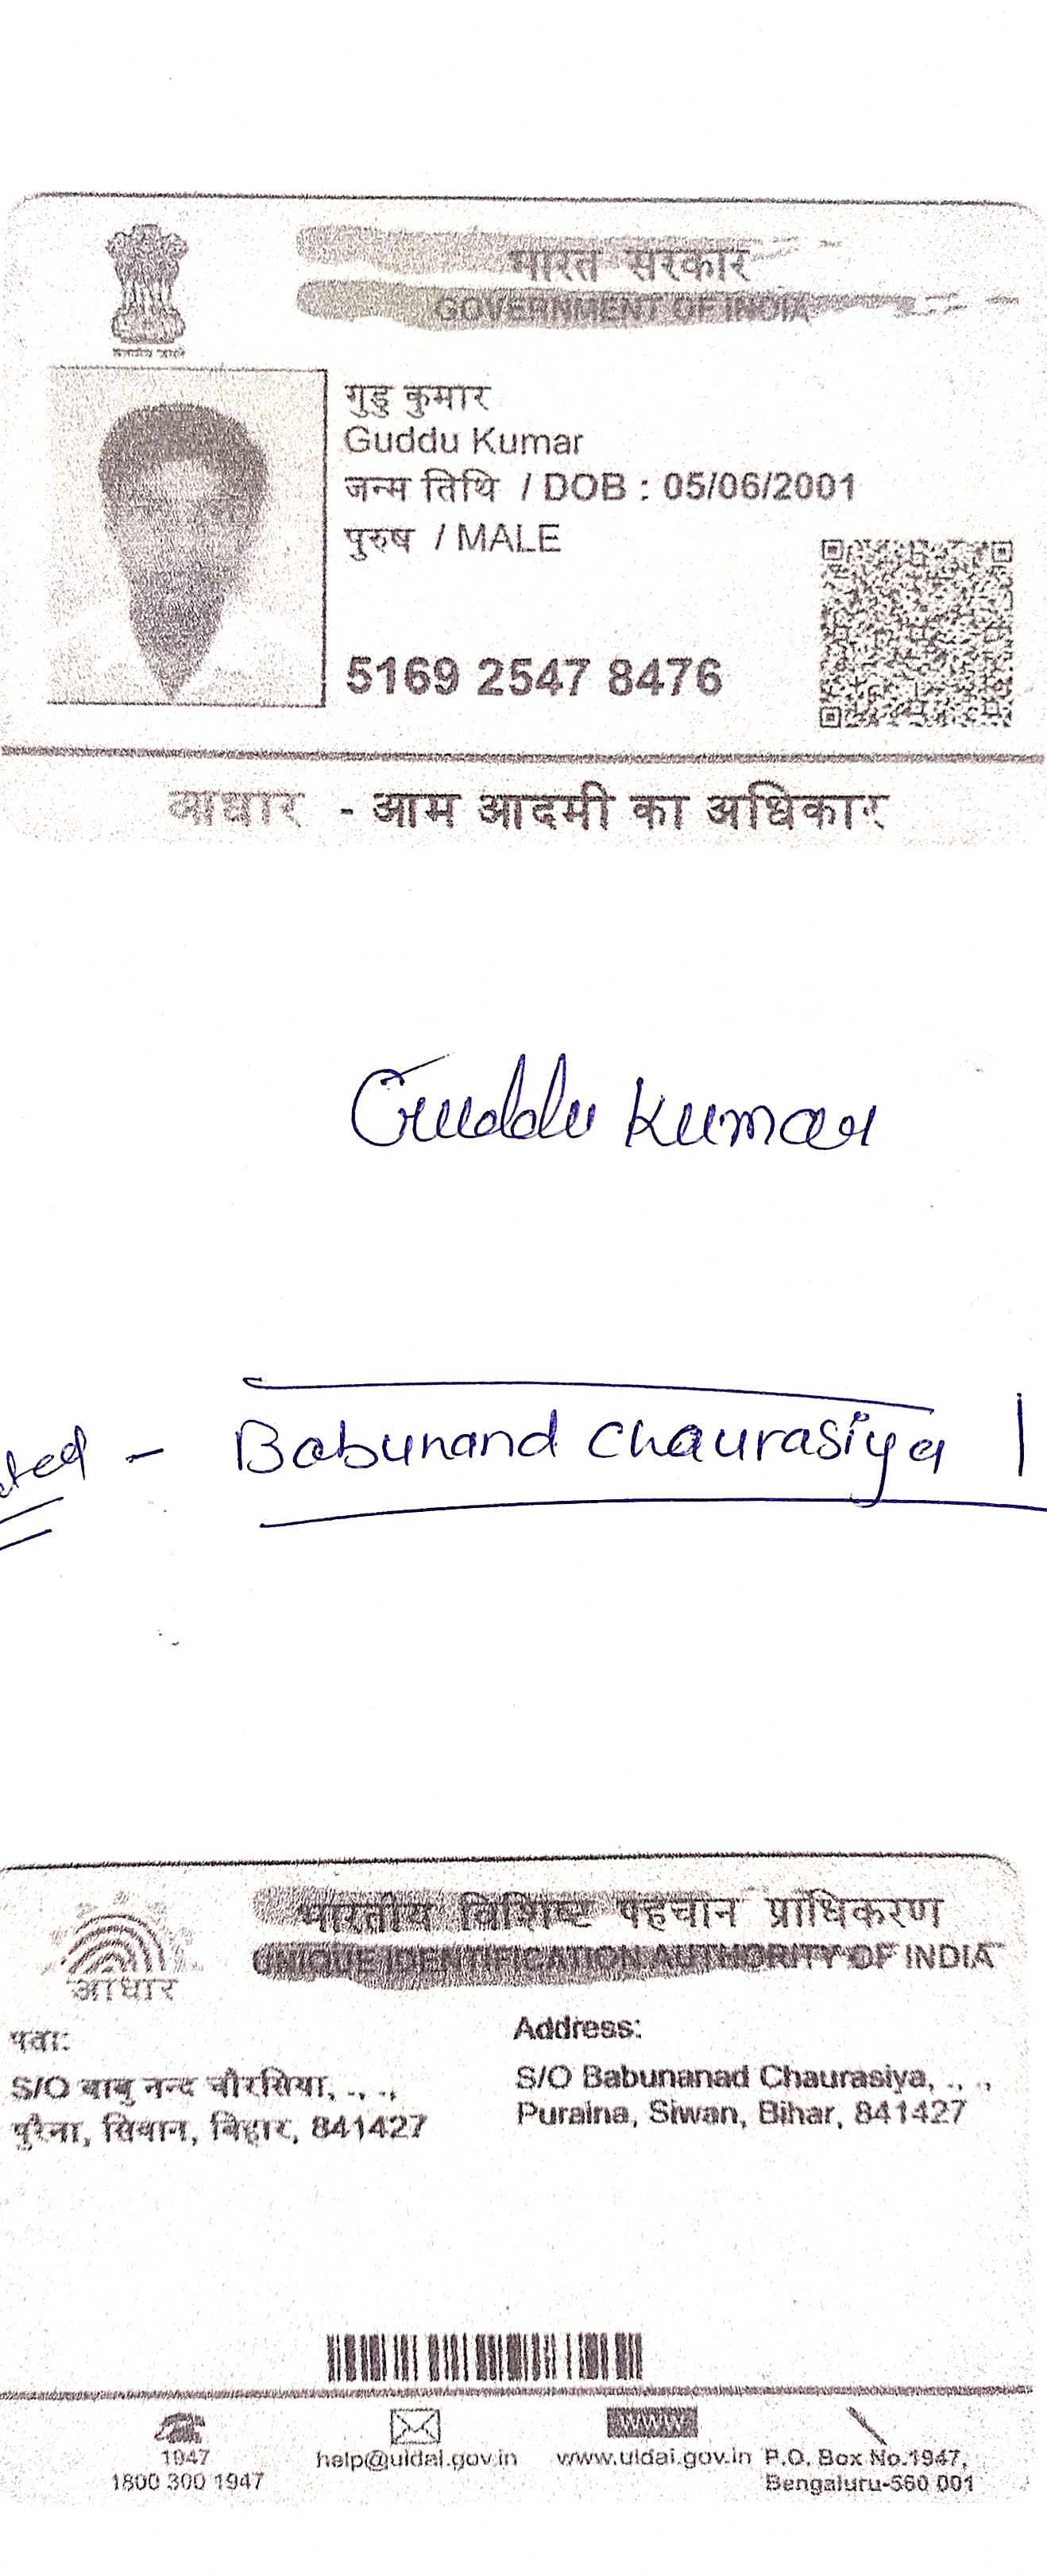 भारत सरकार
GOVERNMENT OF INDIA
गुडु कुमार
Guddu Kumar
जन्म तिथि / DOB : 05/06/2001
पुरुष / MALE
5169 2547 8476
आधार - आम आदमी का अधिकार
Guddu Kumar
- Babunand Chaurasiya |
भारतीय विशिष्ट पहचान प्राधिकरण
UNIQUE IDENTIFICATION AUTHORITY OF INDIA
आधार
पता:
S/O बाबु नन्द चौरसिया, ., .,
पुरैना, सिवान, बिहार, 841427
Address:
S/O Babunanad Chaurasiya, ., .,
Puraina, Siwan, Bihar, 841427
1947
1800 300 1947
help@uidai.gov.in
www
www.uidai.gov.in
P.O. Box No.1947,
Bengaluru-560 001